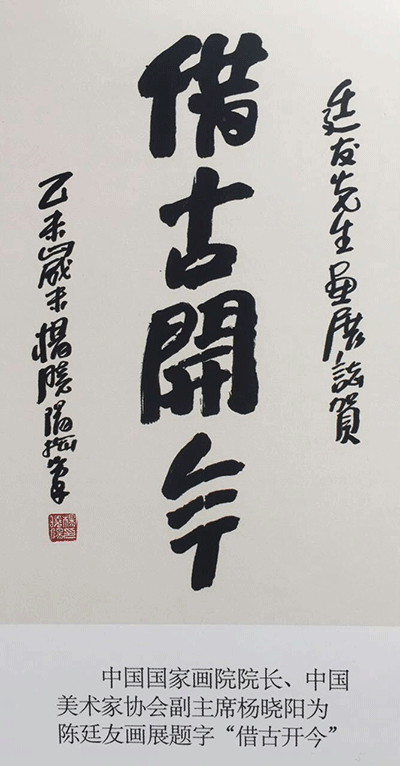 廷友先生画展誌賀
借古開今
乙未歲末楊曉陽
中国国家画院院长、中国
美术家协会副主席杨晓阳为
陈廷友画展题字“借古开今”